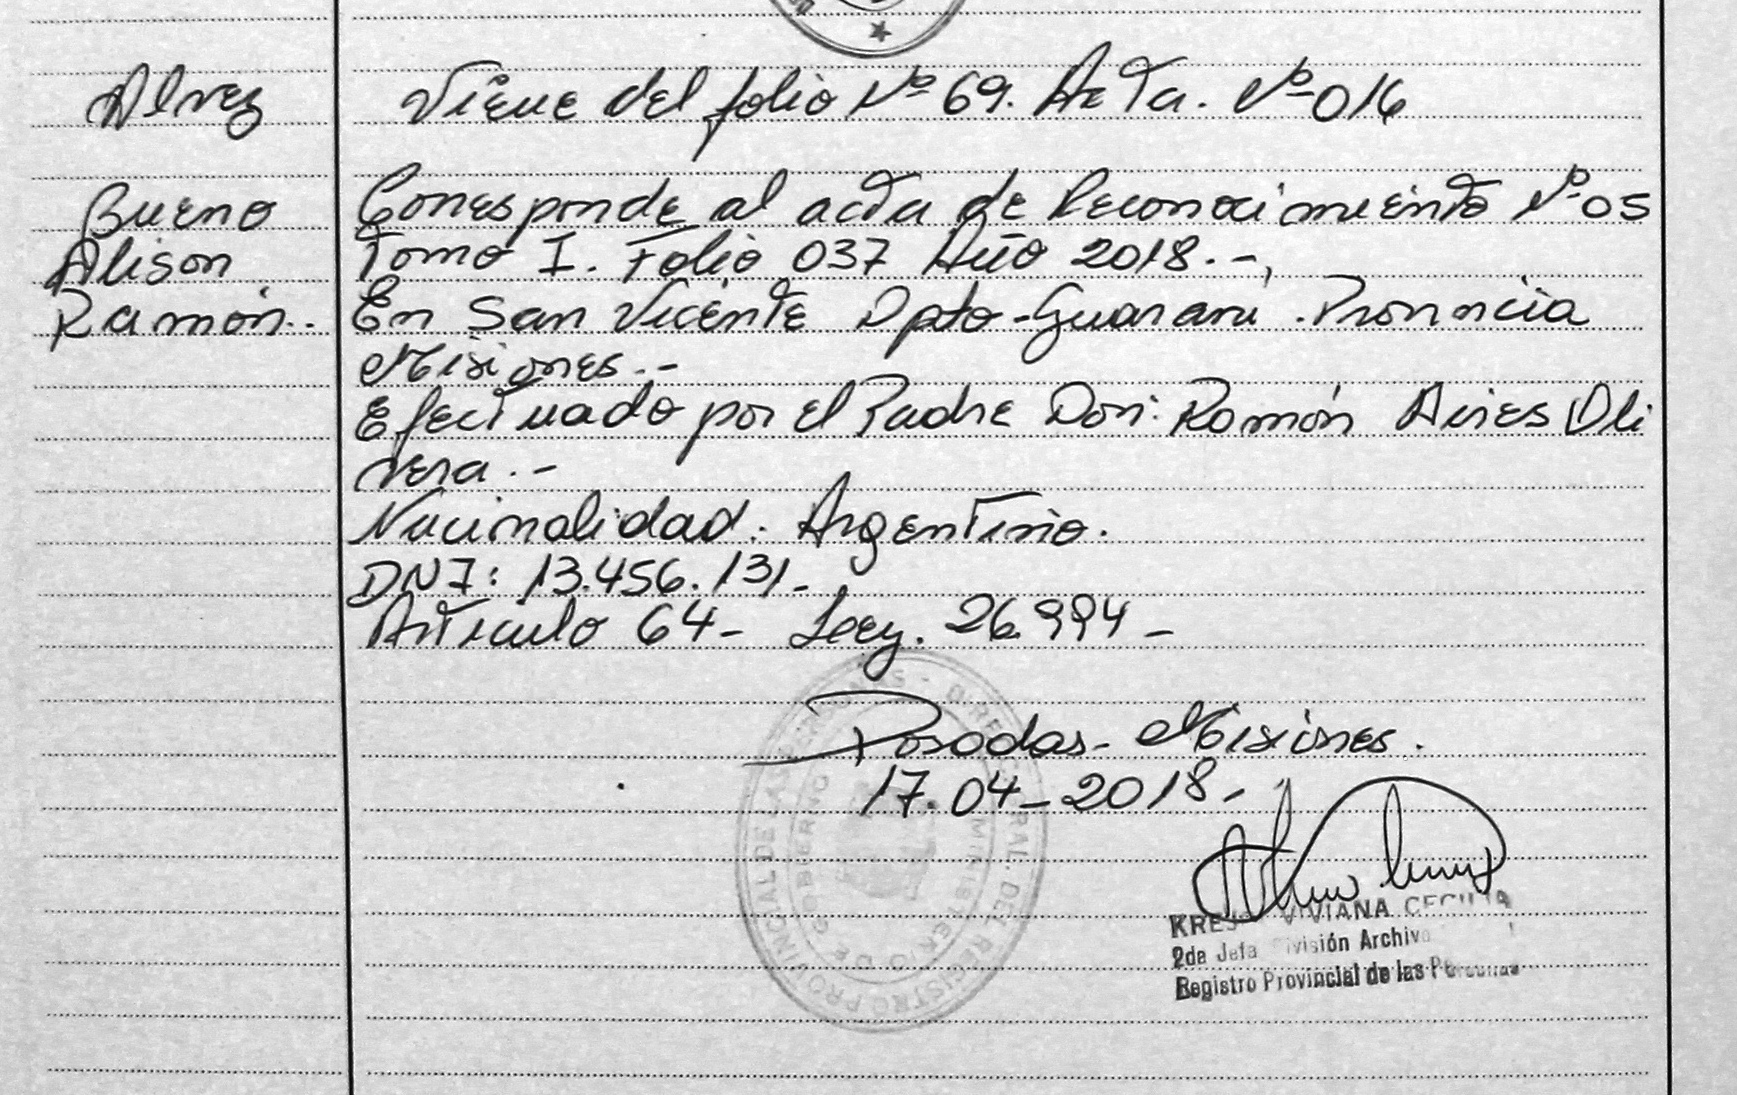 Alvez
Viene del folio Nº 69. Acta. Nº 016
Bueno
Alison
Ramón..
Corresponde al acta de Reconocimiento Nº 05
Tomo I. Folio 037 Año 2018.-,
En San Vicente Dpto-Guaraní. Provincia
Misiones.-
Efectuado por el Padre Don: Ramón Aires Oli
vera.-
Nacionalidad: Argentino.
DNI: 13.456.131-
Artículo 64- Ley. 26.994-
Posadas- Misiones.
17.04-2018.-
DIRECCIÓN GENERAL DEL REGISTRO PROVINCIAL DE LAS PERSONAS -
MINISTERIO DE GOBIERNO
VIVIANA CECILIA
2da Jefa División Archivo
Registro Provincial de las Personas